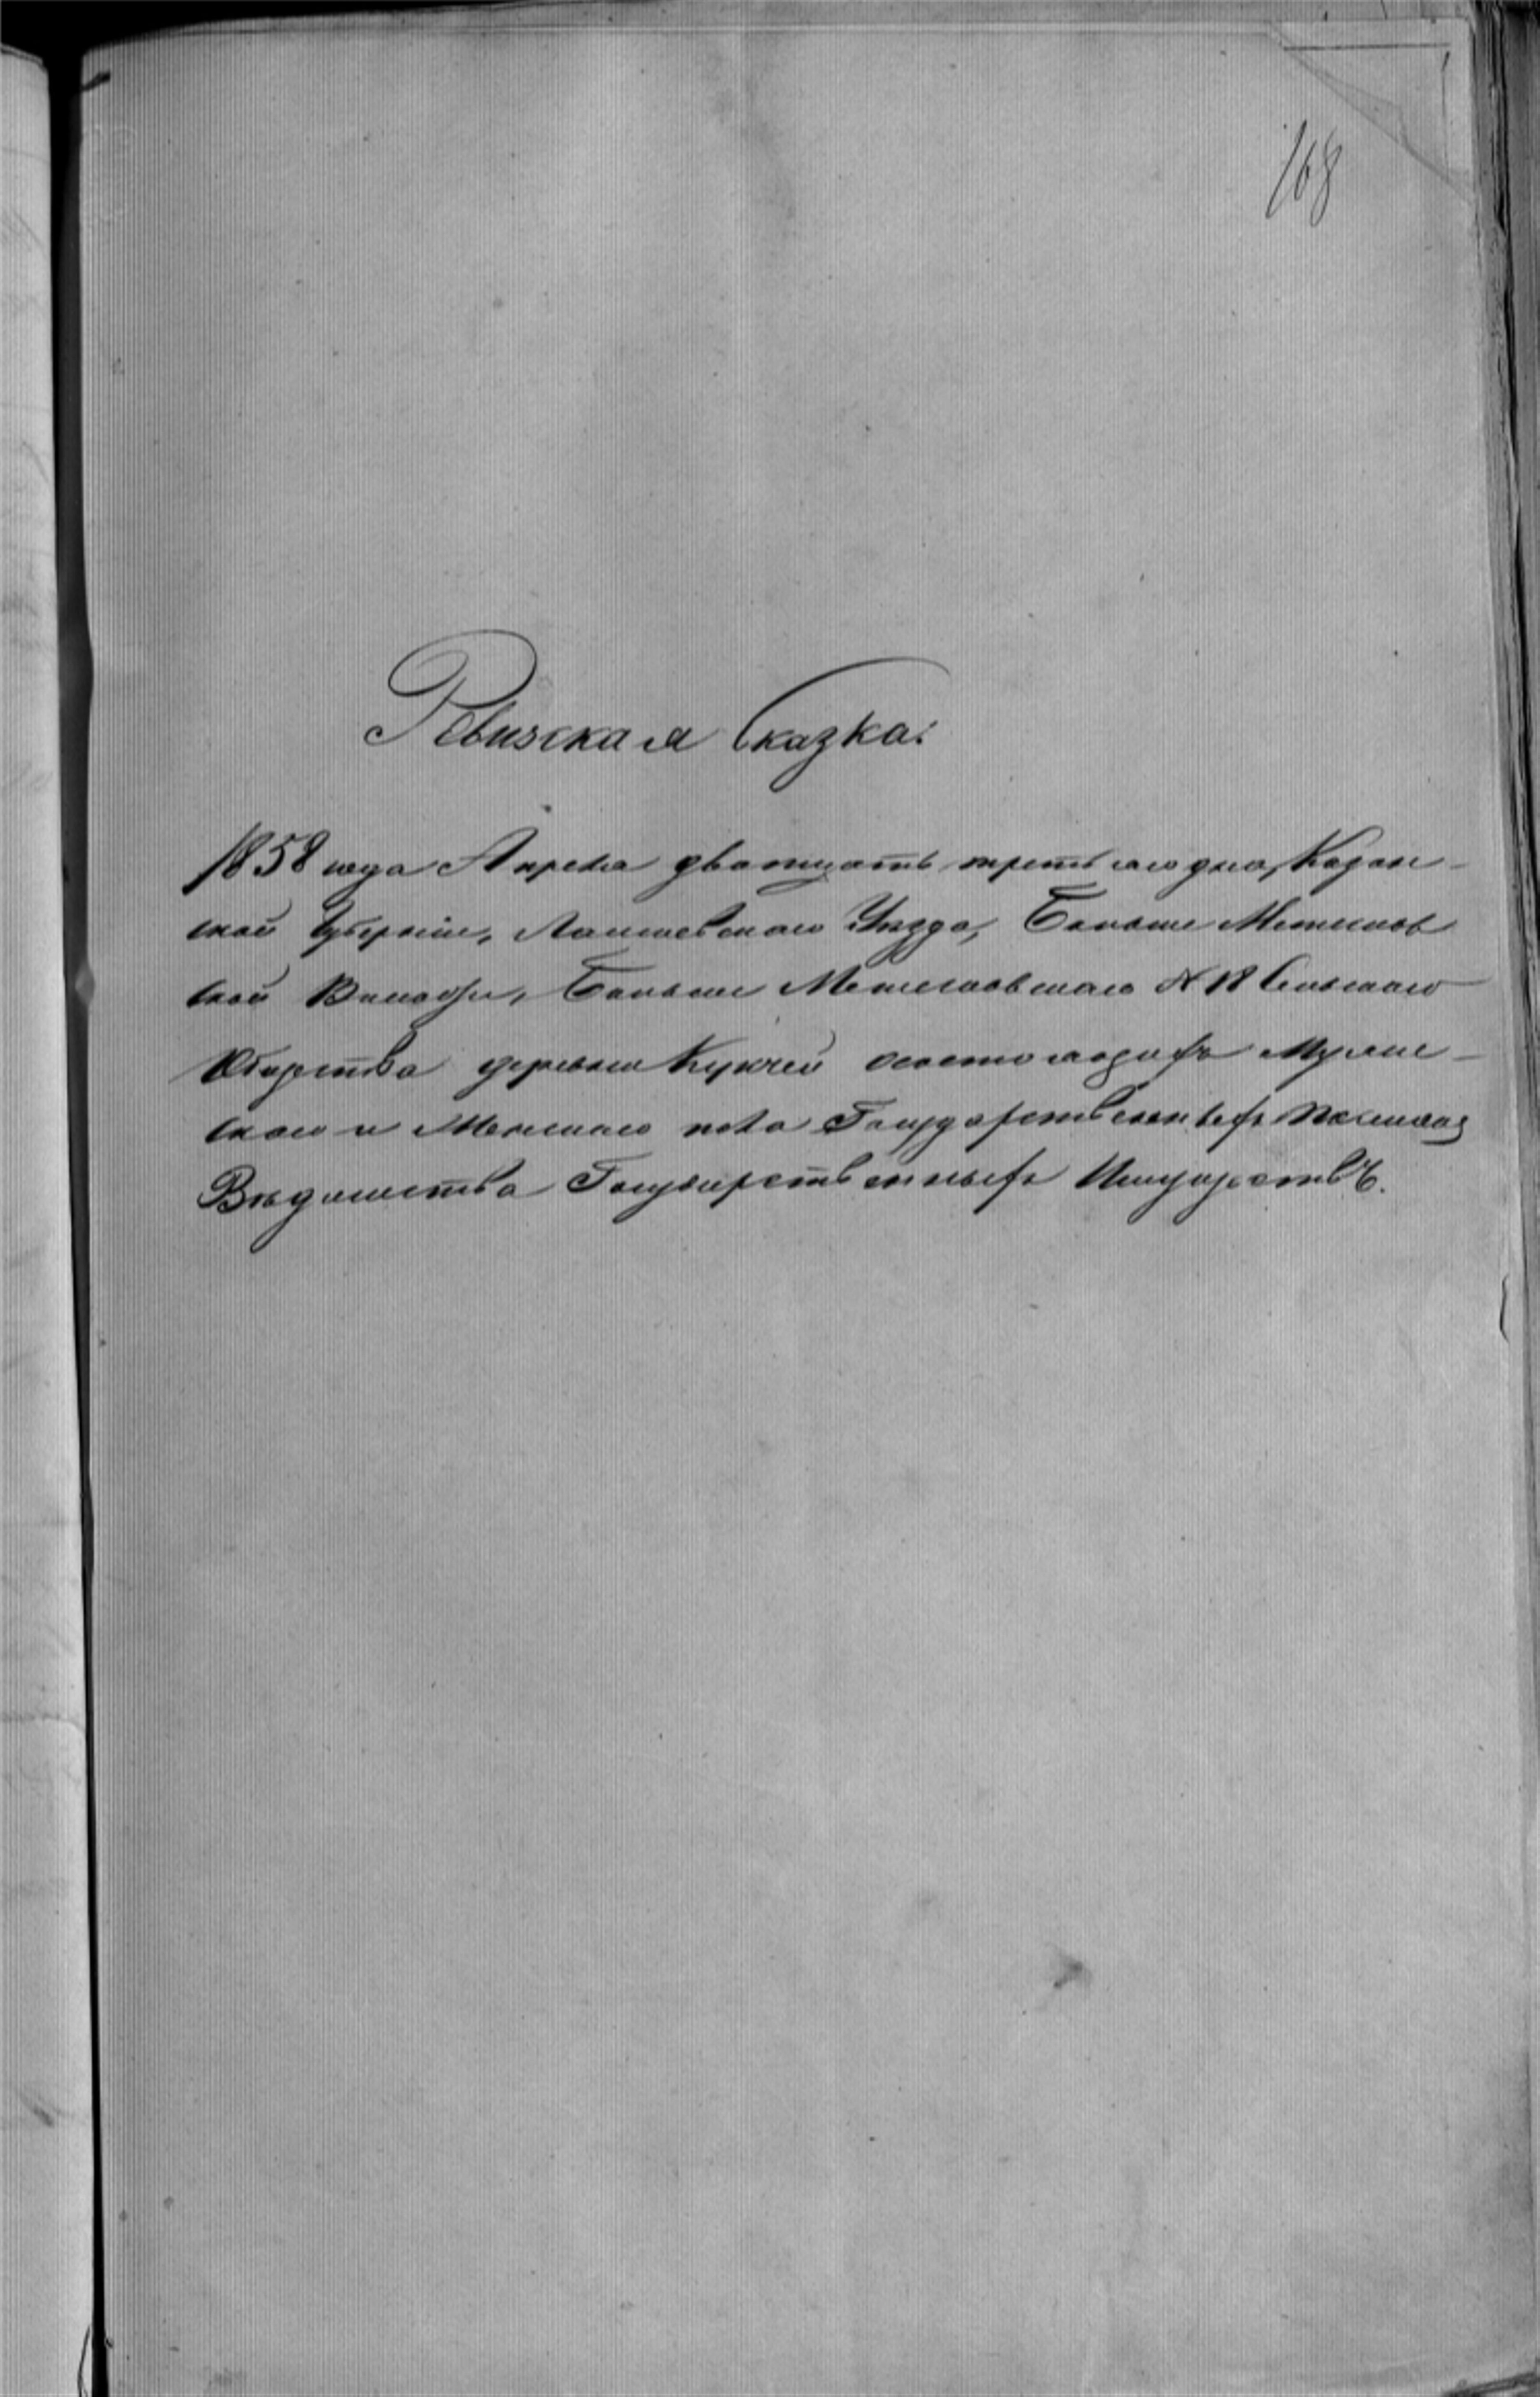 168
Ревизская Сказка.
1858 года Апреля дватцать третьяго дня, Казан-
ской Губерніи, Лаишевскаго Уѣзда, Больше Метесков
ской Волости, Больше Метесковскаго № 18 Сельскаго
Общества деревни Кукчей о состоящихъ Мужес-
каго и Женскаго пола Государственныхъ
Вѣдомства Государственныхъ Имуществъ.